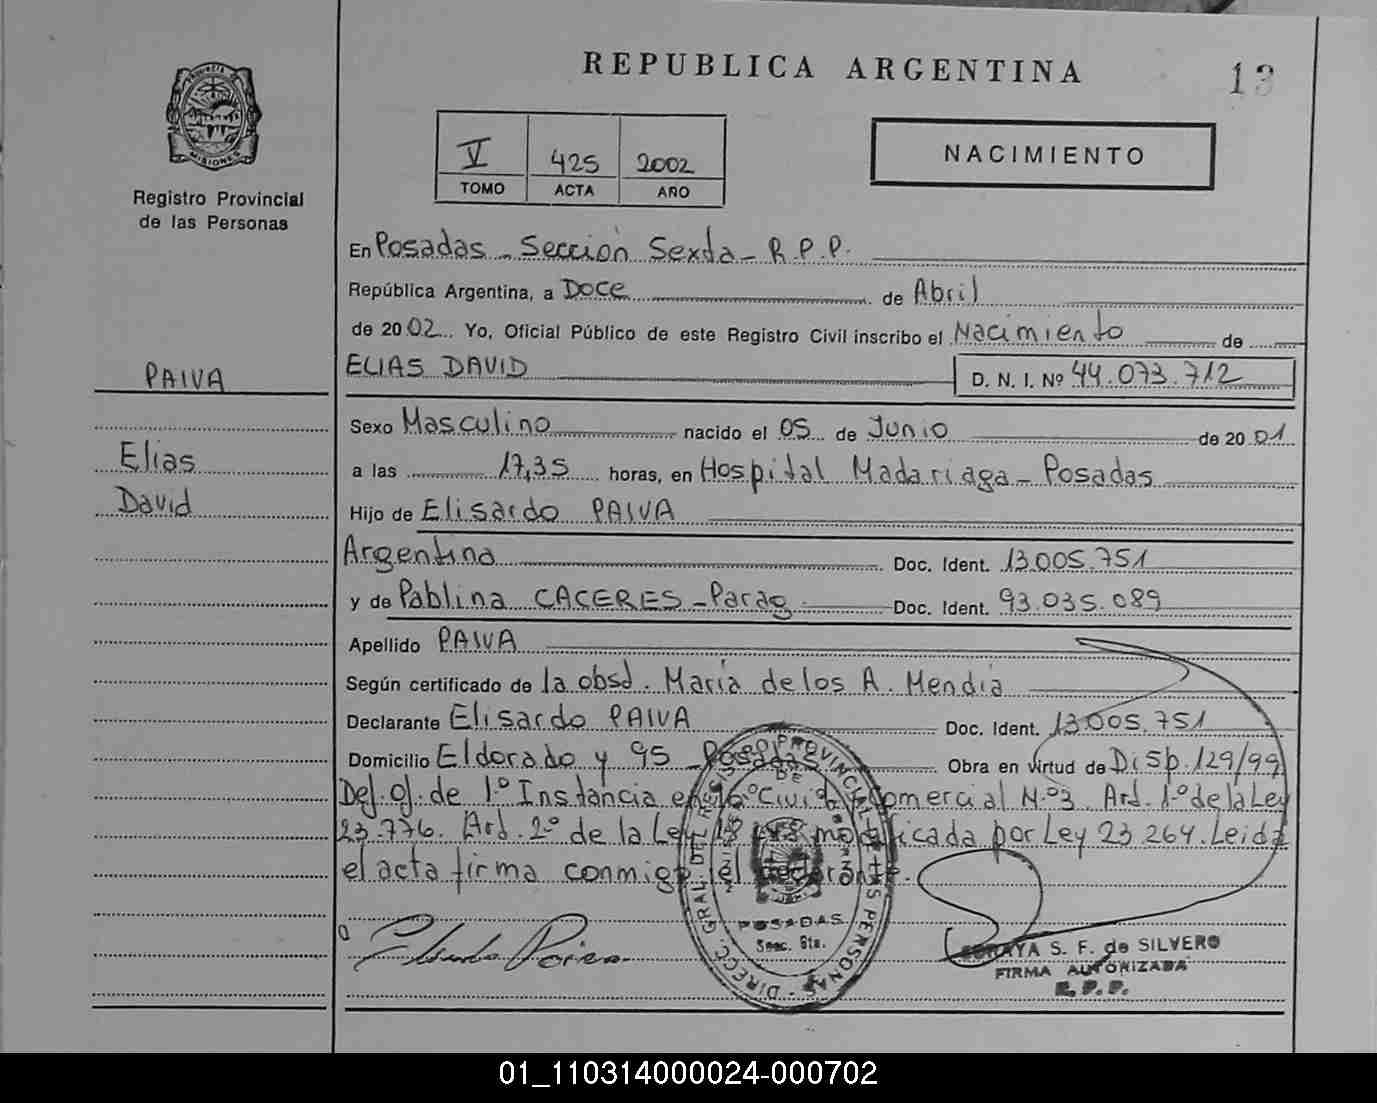 REPUBLICA ARGENTINA
13
PROVINCIA DE MISIONES
Registro Provincial
de las Personas
V 425 2002
TOMO ACTA AÑO
NACIMIENTO
En Posadas - Sección Sexta - R.P.P.
República Argentina, a Doce de Abril
de 2002 Yo, Oficial Público de este Registro Civil inscribo el Nacimiento de
ELIAS DAVID D. N. I. Nº 44.073.712
PAIVA
Elias
David
Sexo Masculino nacido el 05 de Junio de 2001
a las 17,35 horas, en Hospital Madariaga - Posadas
Hijo de Elisardo PAIVA
Argentino Doc. Ident. 13.005.751
y de Pablina CACERES - Parag Doc. Ident. 93.035.089
Apellido PAIVA
Según certificado de la obst. María de los A. Mendia
Declarante Elisardo PAIVA Doc. Ident. 13.005.751
Domicilio Eldorado y 95 - Posadas Obra en virtud de Disp. 129/99
Def. Of. de 1º Instancia en lo Civil y Comercial N.º 3. Art. 1º de la Ley
23.776. Art. 2º de la Ley modificada por Ley 23.264. Leida
el acta firma conmigo el declarante.
DIRECC. GRAL. DEL REGISTRO PROVINCIAL DE LAS PERSONAS
POSADAS
Secc. 6ta.
SORAYA S. F. de SILVERO
FIRMA AUTORIZADA
R. P. P.
01_110314000024-000702